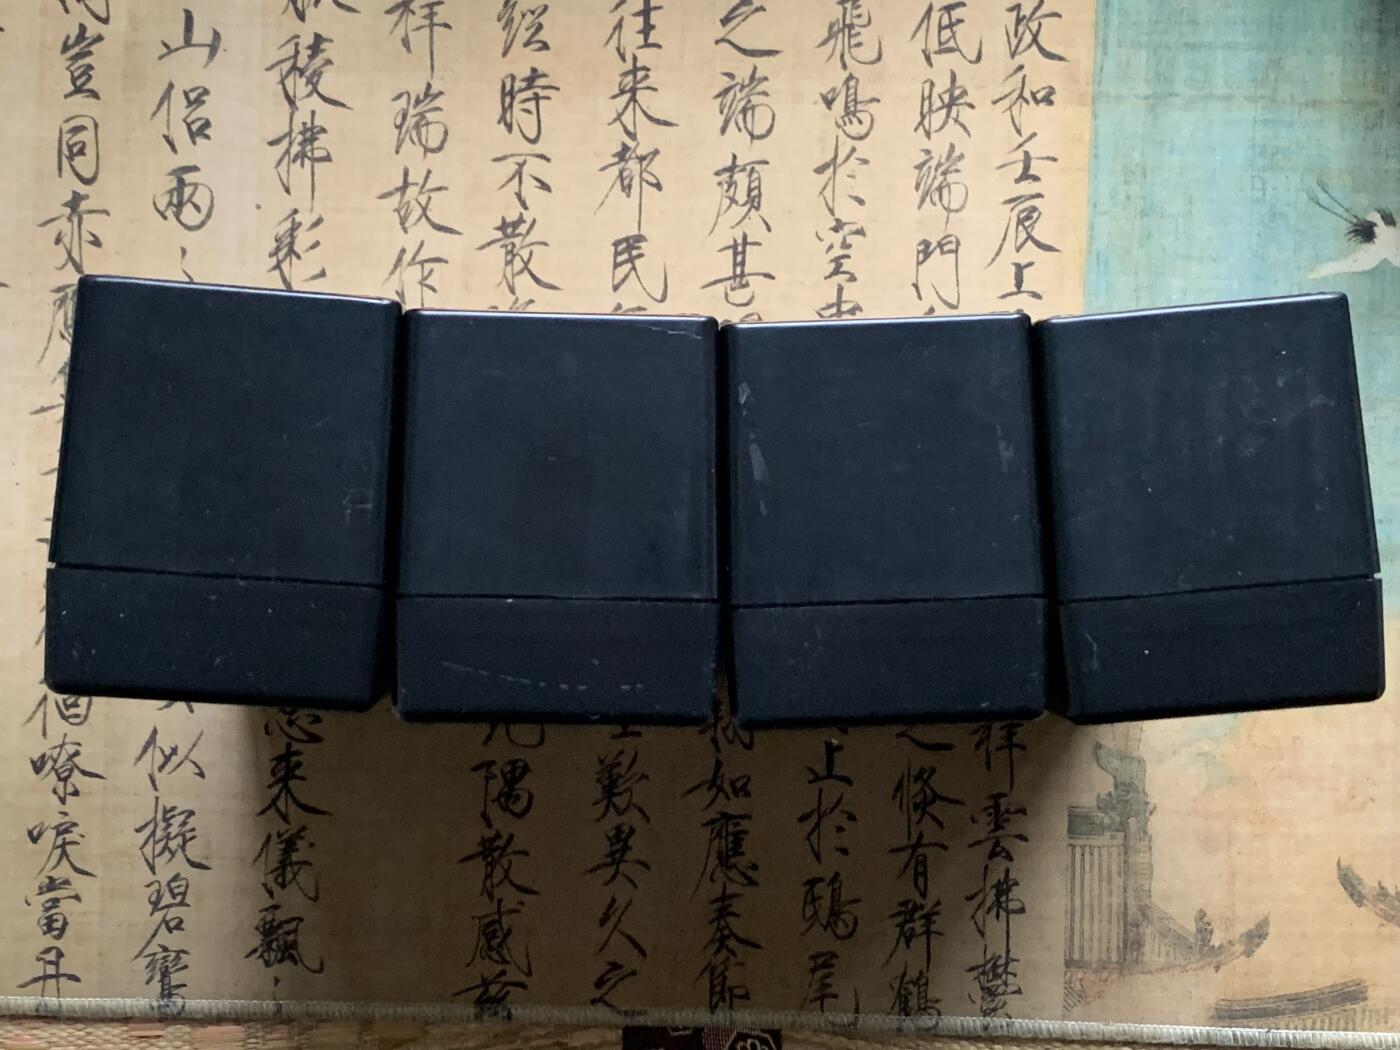 政和壬辰上
祥雲拂鬱
低映端門
之倏有群鶴
飛鳴於空中
止於鴟尾
之端頗甚
如應奏節
往來都民
歎異久之
經時不散
隅散感茲
祥瑞故作
稜拂彩
忽來儀飄
山侶兩
似擬碧鸞
豈同赤鴈
嘹唳當丹